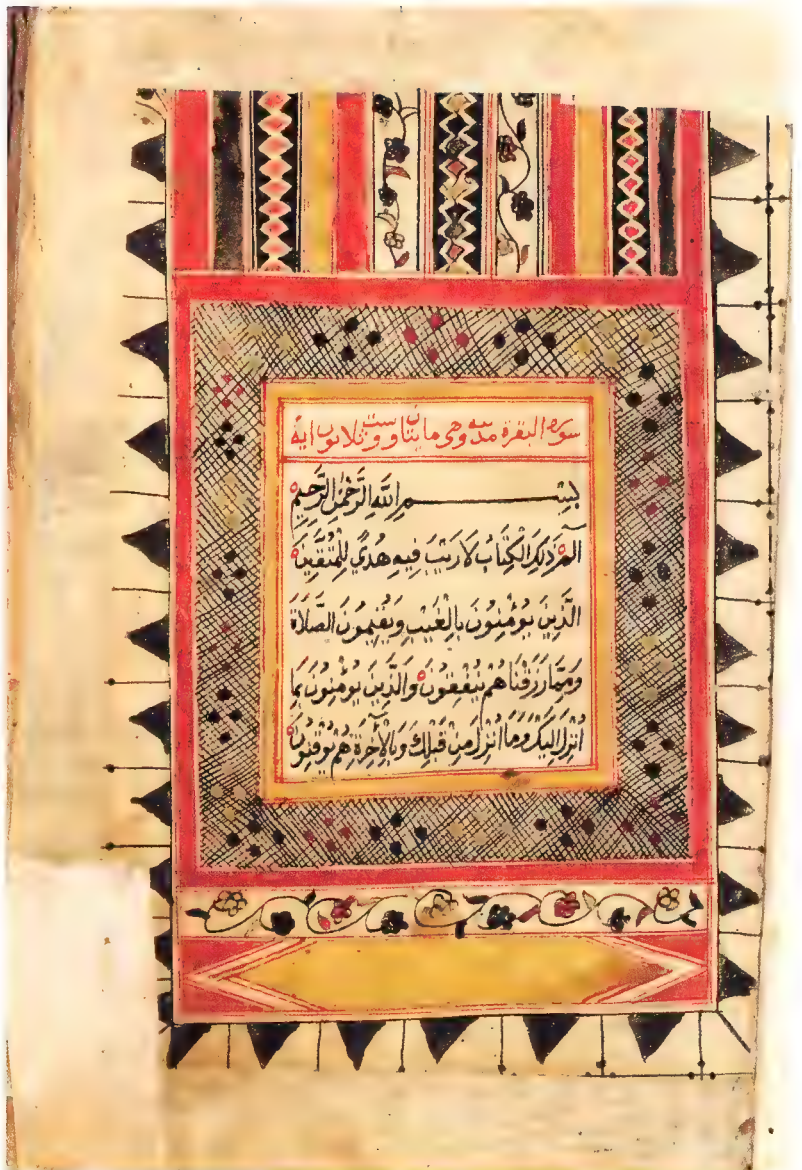 سورة البقرة مدنية وهى مايتان وست وثلاثون اية
بِسْــــــمِ اللهِ الرَّحْمٰنِ الرَّحِيمِ
الٓمٓ ذَلِكَ الْكِتَابُ لَا رَيْبَ فِيهِ هُدًي لِلْمُتَّقِينَ
الَّذِينَ يُؤْمِنُونَ بِالْغَيْبِ وَيُقِيمُونَ الصَّلَاةَ
وَمِمَّا رَزَقْنَا هُمْ يُنْفِقُونَ وَالَّذِينَ يُؤْمِنُونَ بِمَا
اُنْزِلَ اِلَيْكَ وَمَا اُنْزِلَ مِنْ قَبْلِكَ وَبِالْآخِرَةِ هُمْ يُوقِنُونَ